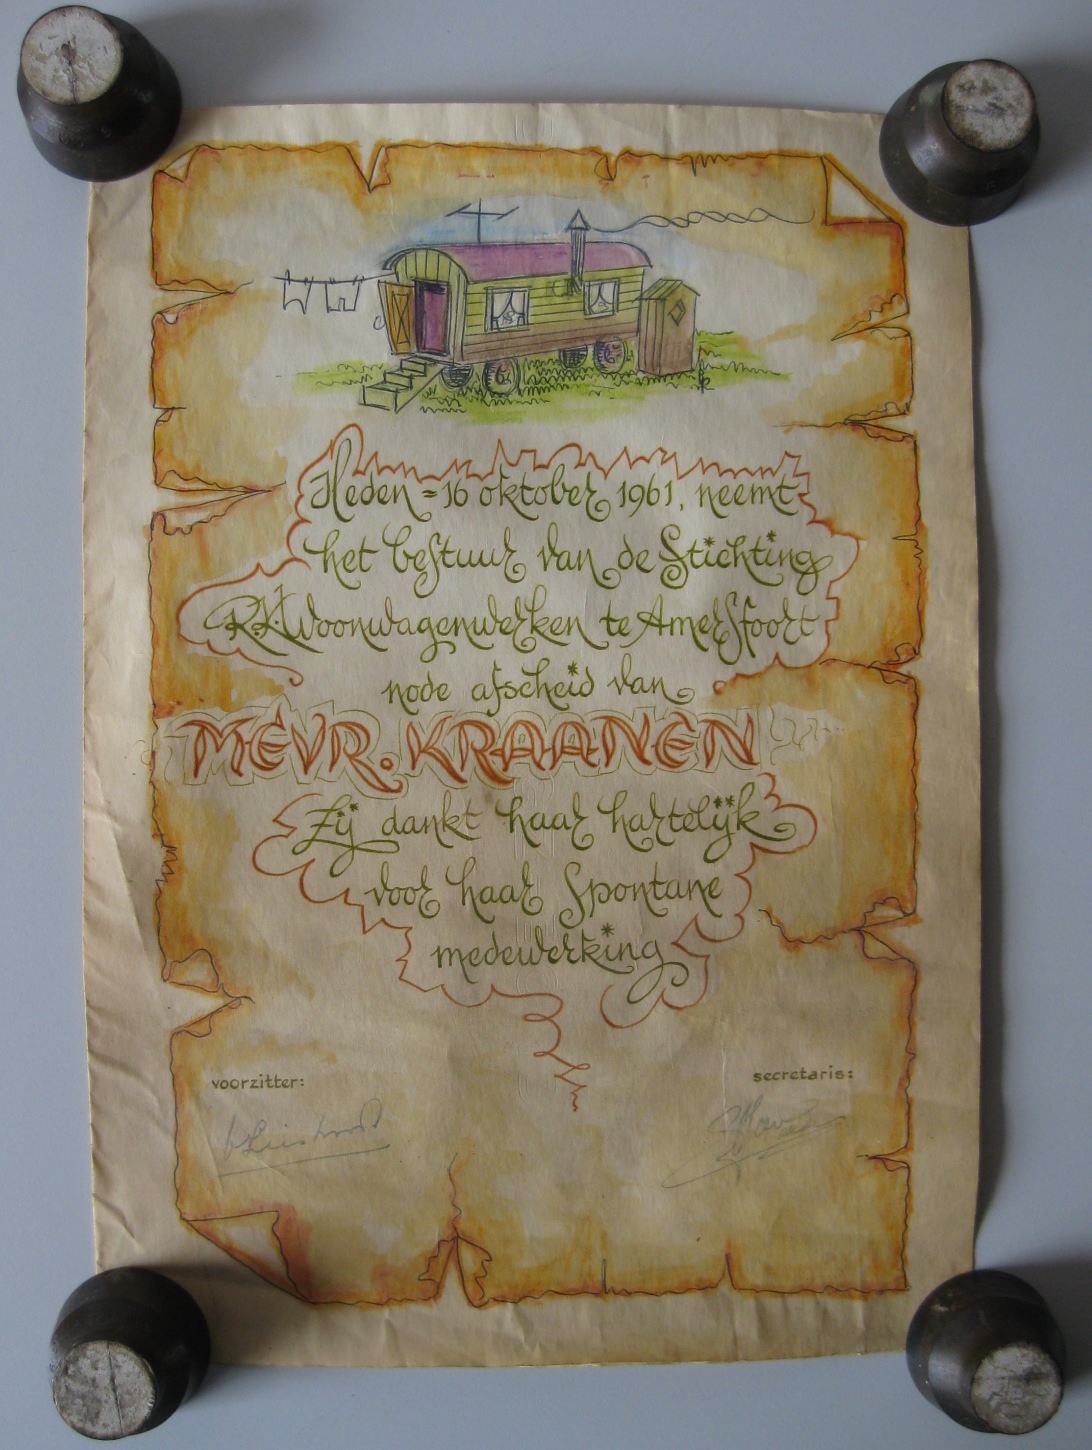 Heden = 16 oktober 1961, neemt
het bestuur van de Stichting
R.K. Woonwagenwerken te Amersfoort
node afscheid van
MEVR. KRAANEN
Zij dankt haar hartelijk
voor haar spontane
medewerking
voorzitter: secretaris: